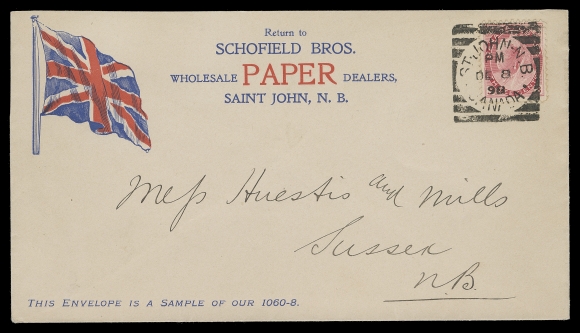 Return to
SCHOFIELD BROS.
WHOLESALE PAPER DEALERS,
SAINT JOHN, N. B.
ST. JOHN. N.B.
PM
DE 8
98
CANADA
Mess Huestis and Mills
Sussex
N.B.
THIS ENVELOPE IS A SAMPLE OF OUR 1060-8.